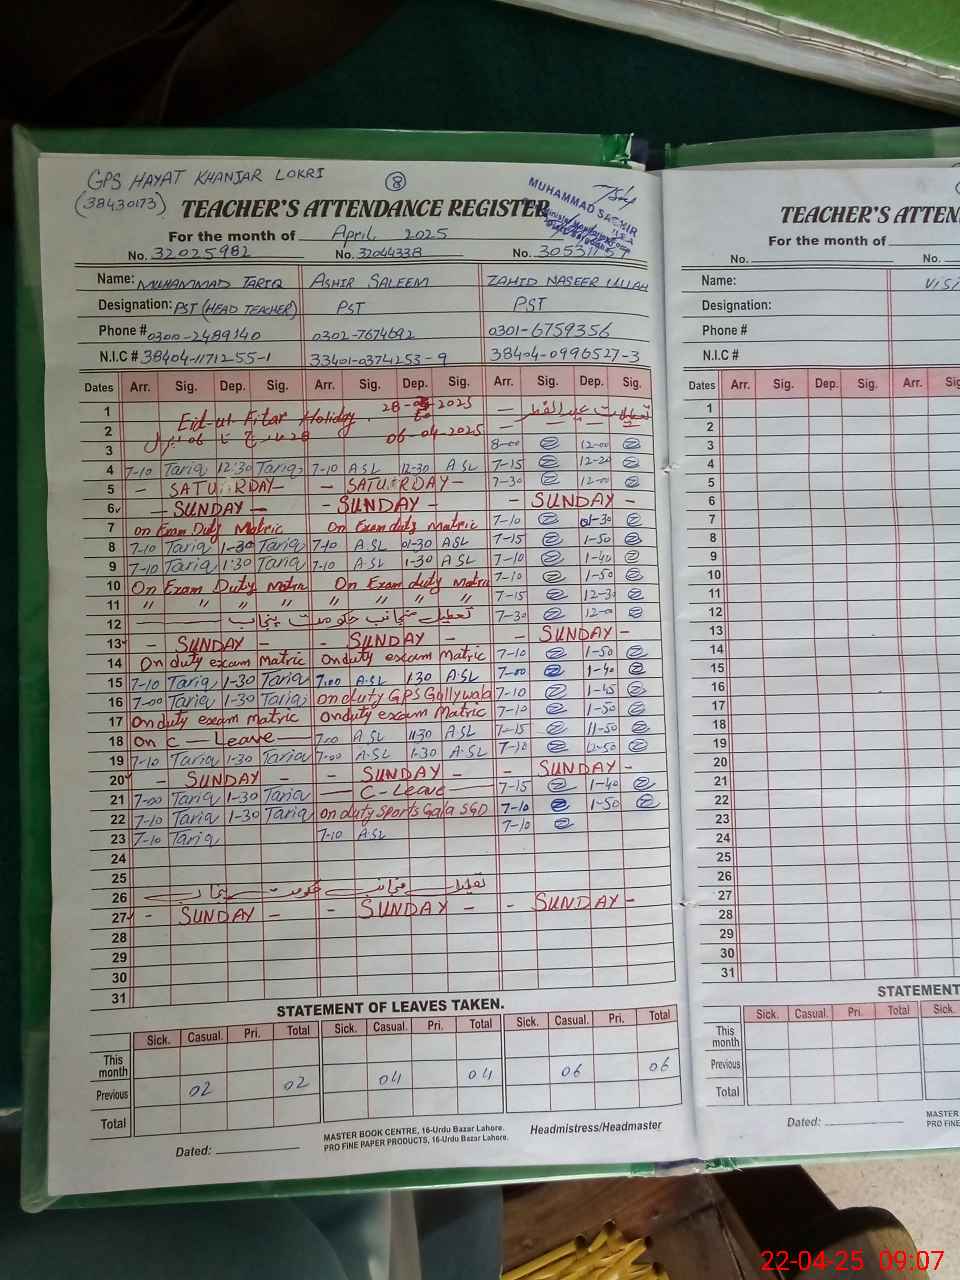 GPS HAYAT KHANJAR LOKRI
(38430173)
8
MUHAMMAD
TEACHER'S ATTENDANCE REGISTER
For the month of April, 2025
No. 32025982 No. 32044338 No.
Name: MUHAMMAD TARIQ ASHIR SALEEM ZAHID NASEER ULLAH
Designation: PST (HEAD TEACHER) PST PST
Phone # 0300-2489140 0302-7674692 0301-6759356
N.I.C # 38404-1171255-1 33401-0374253-9 38404-0996527-3
Dates Arr. Sig. Dep. Sig. Arr. Sig. Dep. Sig. Arr. Sig. Dep. Sig.
1 Eid-ul-Fitar Holiday 28-03-2025 to – تعطیلات عید الفطر –
2 06-04-2025 –
3 8-00 12-00
4 7-10 Tariq 12:30 Tariq 7-10 ASL 12-30 ASL 7-15 12-20
5 – SATURDAY – – SATURDAY – 7-30 12-00
6 – SUNDAY – – SUNDAY – – SUNDAY –
7 On Exam Duty Matric On Exam duty matric 7-10 01-30
8 7-10 Tariq 1-30 Tariq 7-10 A.SL 01-30 ASL 7-15 1-50
9 7-10 Tariq 1:30 Tariq 7-10 A.SL 1-30 ASL 7-10 1-40
10 On Exam Duty Matric On Exam duty Matric 7-10 1-50
11 " " " " " " " " 7-15 12-30
12 تعطیل منجانب حکومت پنجاب 7-30 12-00
13 – SUNDAY – – SUNDAY – – SUNDAY –
14 On duty exam Matric On duty exam Matric 7-10 1-50
15 7-10 Tariq 1-30 Tariq 7:00 A.SL 1:30 A.SL 7-00 1-40
16 7-00 Tariq 1-30 Tariq on duty GPS Gollywala 7-10 1-45
17 On duty exam Matric On duty exam Matric 7-10 1-50
18 On C – Leave – 7:00 ASL 11:30 ASL 7-15 11-50
19 7-10 Tariq 1-30 Tariq 7-00 A.SL 1-30 A.SL 7-10 12-50
20 – SUNDAY – – SUNDAY – – SUNDAY –
21 7-00 Tariq 1-30 Tariq C-Leave 7-15 1-40
22 7-10 Tariq 1-30 Tariq On duty Sports Gala SGD 7-10 1-50
23 7-10 Tariq 7-10 A.SL 7-10
24
25
26 تعطیل منجانب حکومت پنجاب
27 – SUNDAY – – SUNDAY – – SUNDAY –
28
29
30
31
STATEMENT OF LEAVES TAKEN.
Sick. Casual. Pri. Total Sick. Casual. Pri. Total Sick. Casual. Pri. Total
This month
Previous 02 02 04 04 06 06
Total
Dated:
MASTER BOOK CENTRE, 16-Urdu Bazar Lahore.
PRO FINE PAPER PRODUCTS, 16-Urdu Bazar Lahore.
Headmistress/Headmaster
TEACHER'S ATTEN
For the month of
No. No.
Name: VISI
Designation:
Phone #
N.I.C #
Dates Arr. Sig. Dep. Sig. Arr. Sig
1
2
3
4
5
6
7
8
9
10
11
12
13
14
15
16
17
18
19
20
21
22
23
24
25
26
27
28
29
30
31
STATEMENT
Sick. Casual. Pri. Total Sick.
This month
Previous
Total
Dated:
MASTER
PRO FINE
22-04-25 09:07